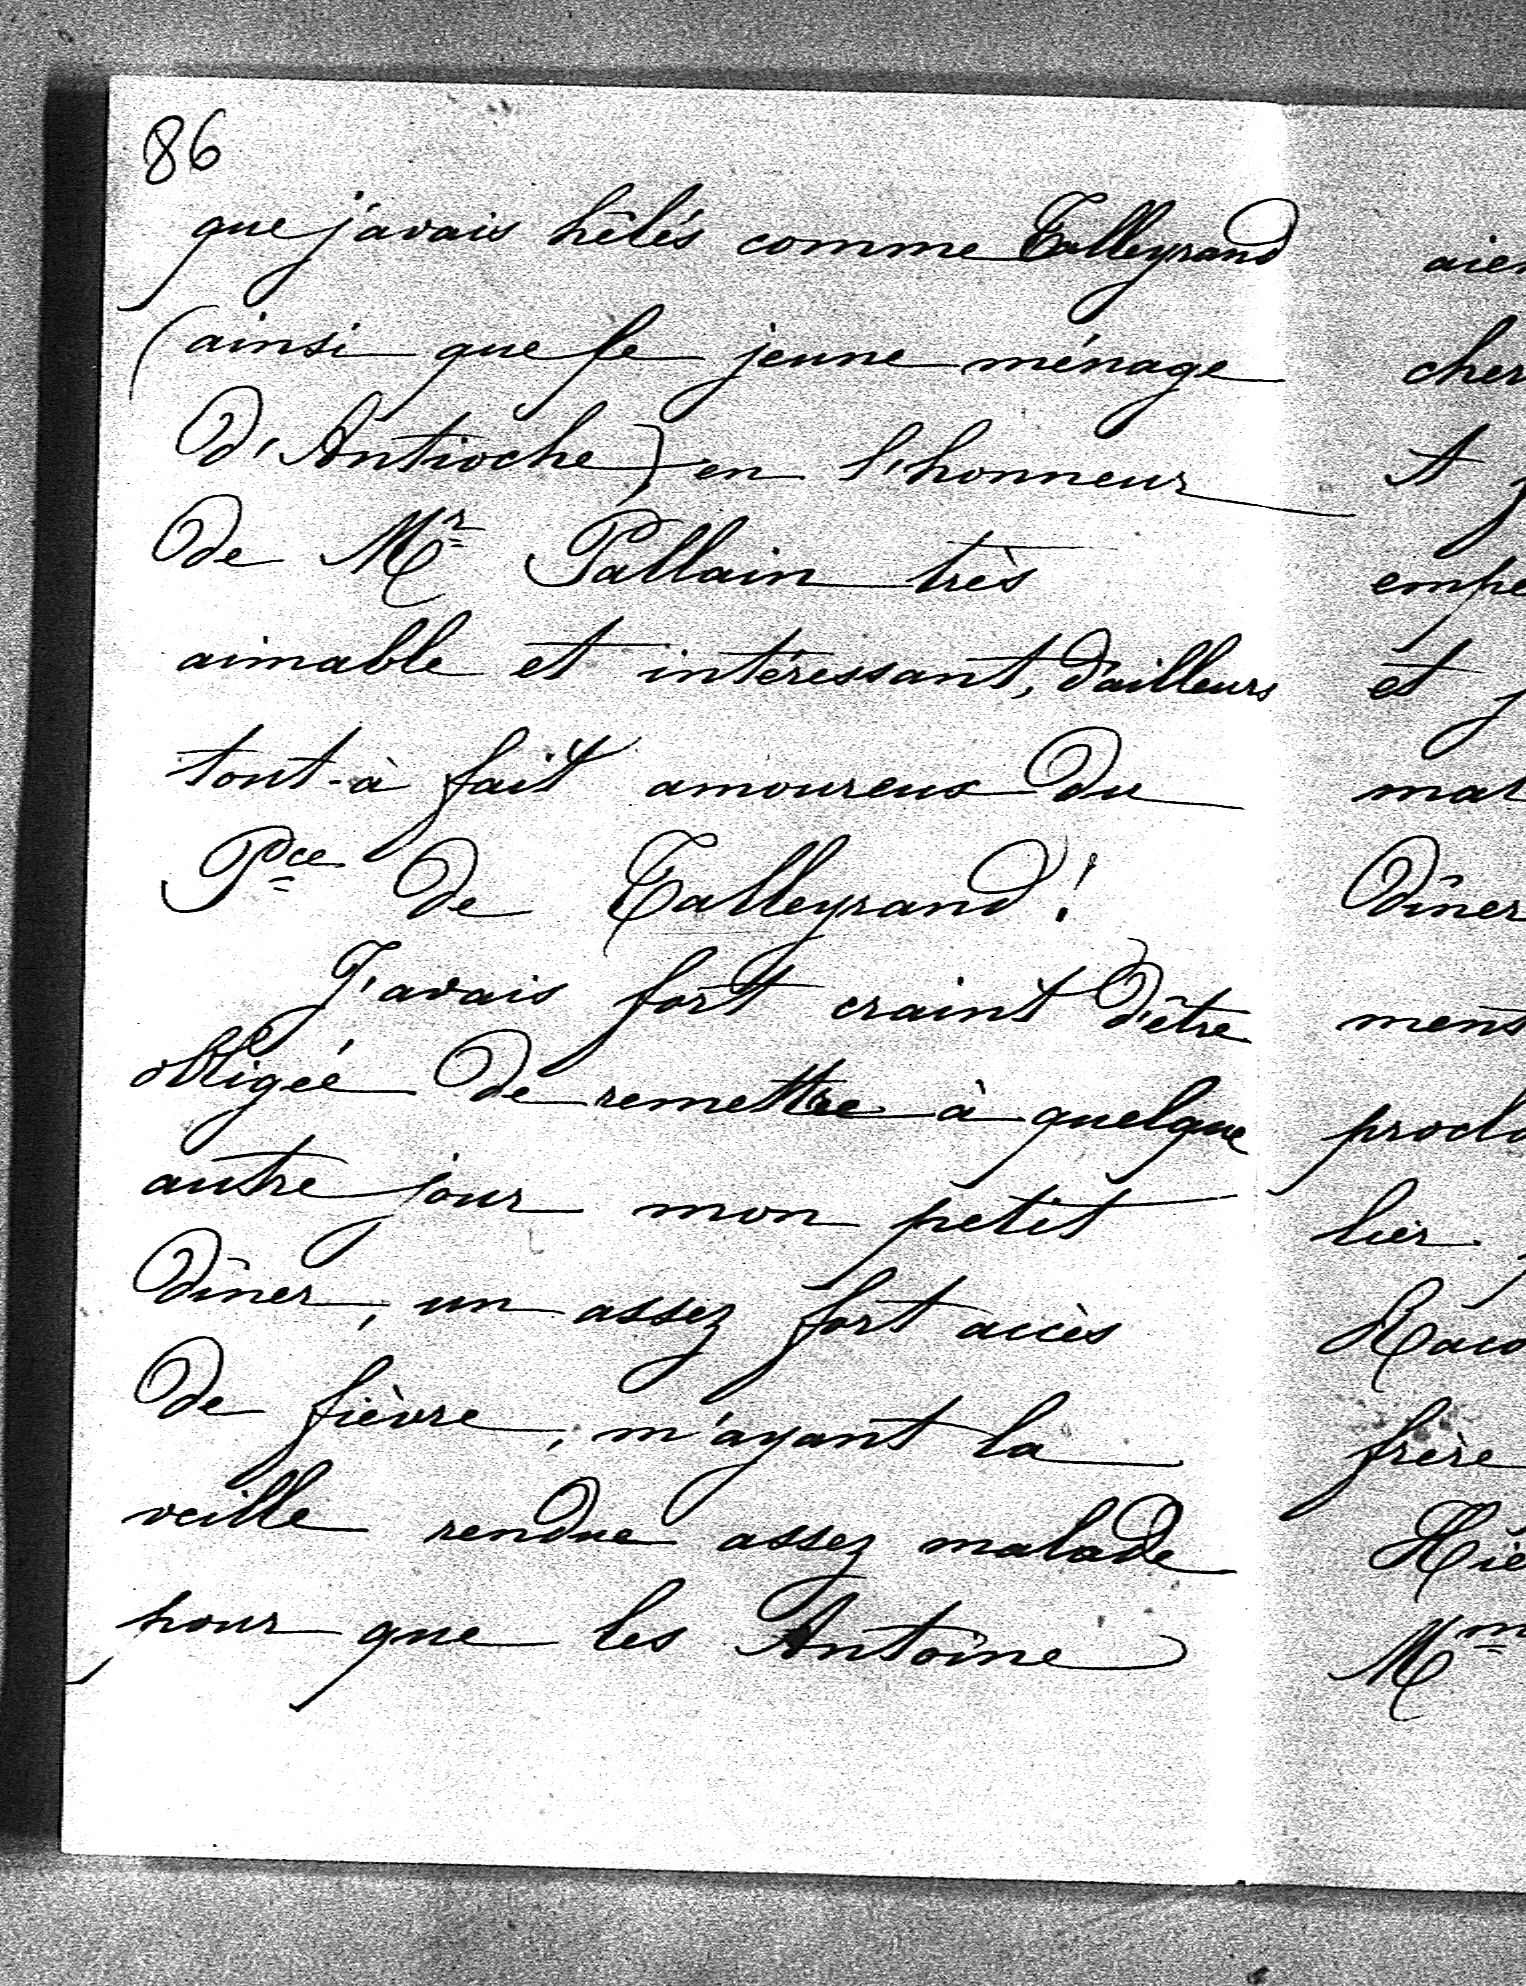 86
que j'avais hêlés comme Talleyrand
(ainsi que le jeune ménage
d'Antioche) en l'honneur
de Mr Pallain très
aimable et intéressant, d'ailleurs
tout-à fait amoureux du
Pce de Talleyrand!
J'avais fort craint d'être
obligée de remettre à quelque
autre jour mon petit
dîner, un assez fort accès
de fièvre, m'ayant la
veille rendue assez malade
pour que les Antoine
aien
cher
et j
mat
dîner
ment
proclo
lier
Raco
frère
Hié
Mm